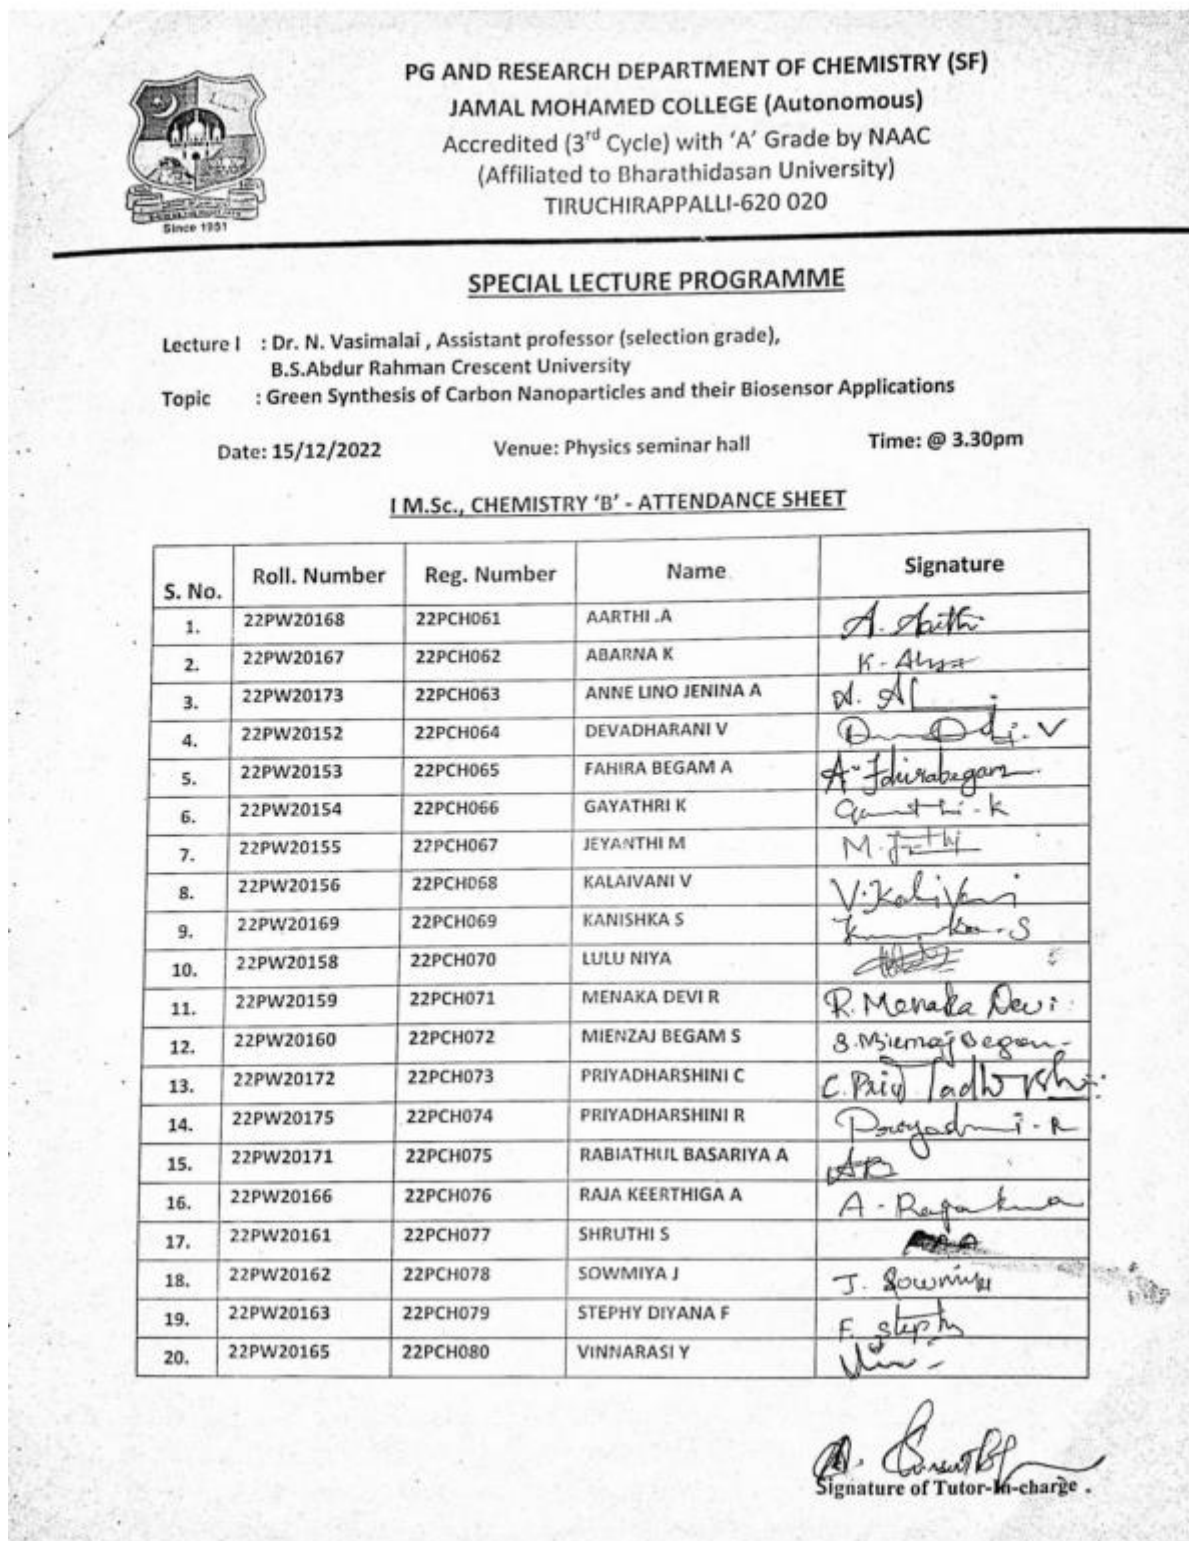 PG AND RESEARCH DEPARTMENT OF CHEMISTRY (SF)
JAMAL MOHAMED COLLEGE (Autonomous)
Accredited (3rd Cycle) with ‘A’ Grade by NAAC
(Affiliated to Bharathidasan University)
TIRUCHIRAPPALLI-620 020
Since 1951
SPECIAL LECTURE PROGRAMME
Lecture I : Dr. N. Vasimalai , Assistant professor (selection grade),
B.S.Abdur Rahman Crescent University
Topic : Green Synthesis of Carbon Nanoparticles and their Biosensor Applications
Date: 15/12/2022 Venue: Physics seminar hall Time: @ 3.30pm
I M.Sc., CHEMISTRY ‘B’ - ATTENDANCE SHEET
S. No. Roll. Number Reg. Number Name Signature
1. 22PW20168 22PCH061 AARTHI .A A.
2. 22PW20167 22PCH062 ABARNA K K.
3. 22PW20173 22PCH063 ANNE LINO JENINA A A.
4. 22PW20152 22PCH064 DEVADHARANI V V
5. 22PW20153 22PCH065 FAHIRA BEGAM A A.
6. 22PW20154 22PCH066 GAYATHRI K K
7. 22PW20155 22PCH067 JEYANTHI M M.
8. 22PW20156 22PCH068 KALAIVANI V V.
9. 22PW20169 22PCH069 KANISHKA S S
10. 22PW20158 22PCH070 LULU NIYA
11. 22PW20159 22PCH071 MENAKA DEVI R R. Menaka Devi
12. 22PW20160 22PCH072 MIENZAJ BEGAM S S.
13. 22PW20172 22PCH073 PRIYADHARSHINI C C.
14. 22PW20175 22PCH074 PRIYADHARSHINI R R
15. 22PW20171 22PCH075 RABIATHUL BASARIYA A AB
16. 22PW20166 22PCH076 RAJA KEERTHIGA A A -
17. 22PW20161 22PCH077 SHRUTHI S
18. 22PW20162 22PCH078 SOWMIYA J J. Sowmiya
19. 22PW20163 22PCH079 STEPHY DIYANA F F. Stephy
20. 22PW20165 22PCH080 VINNARASI Y
Signature of Tutor-In-charge .